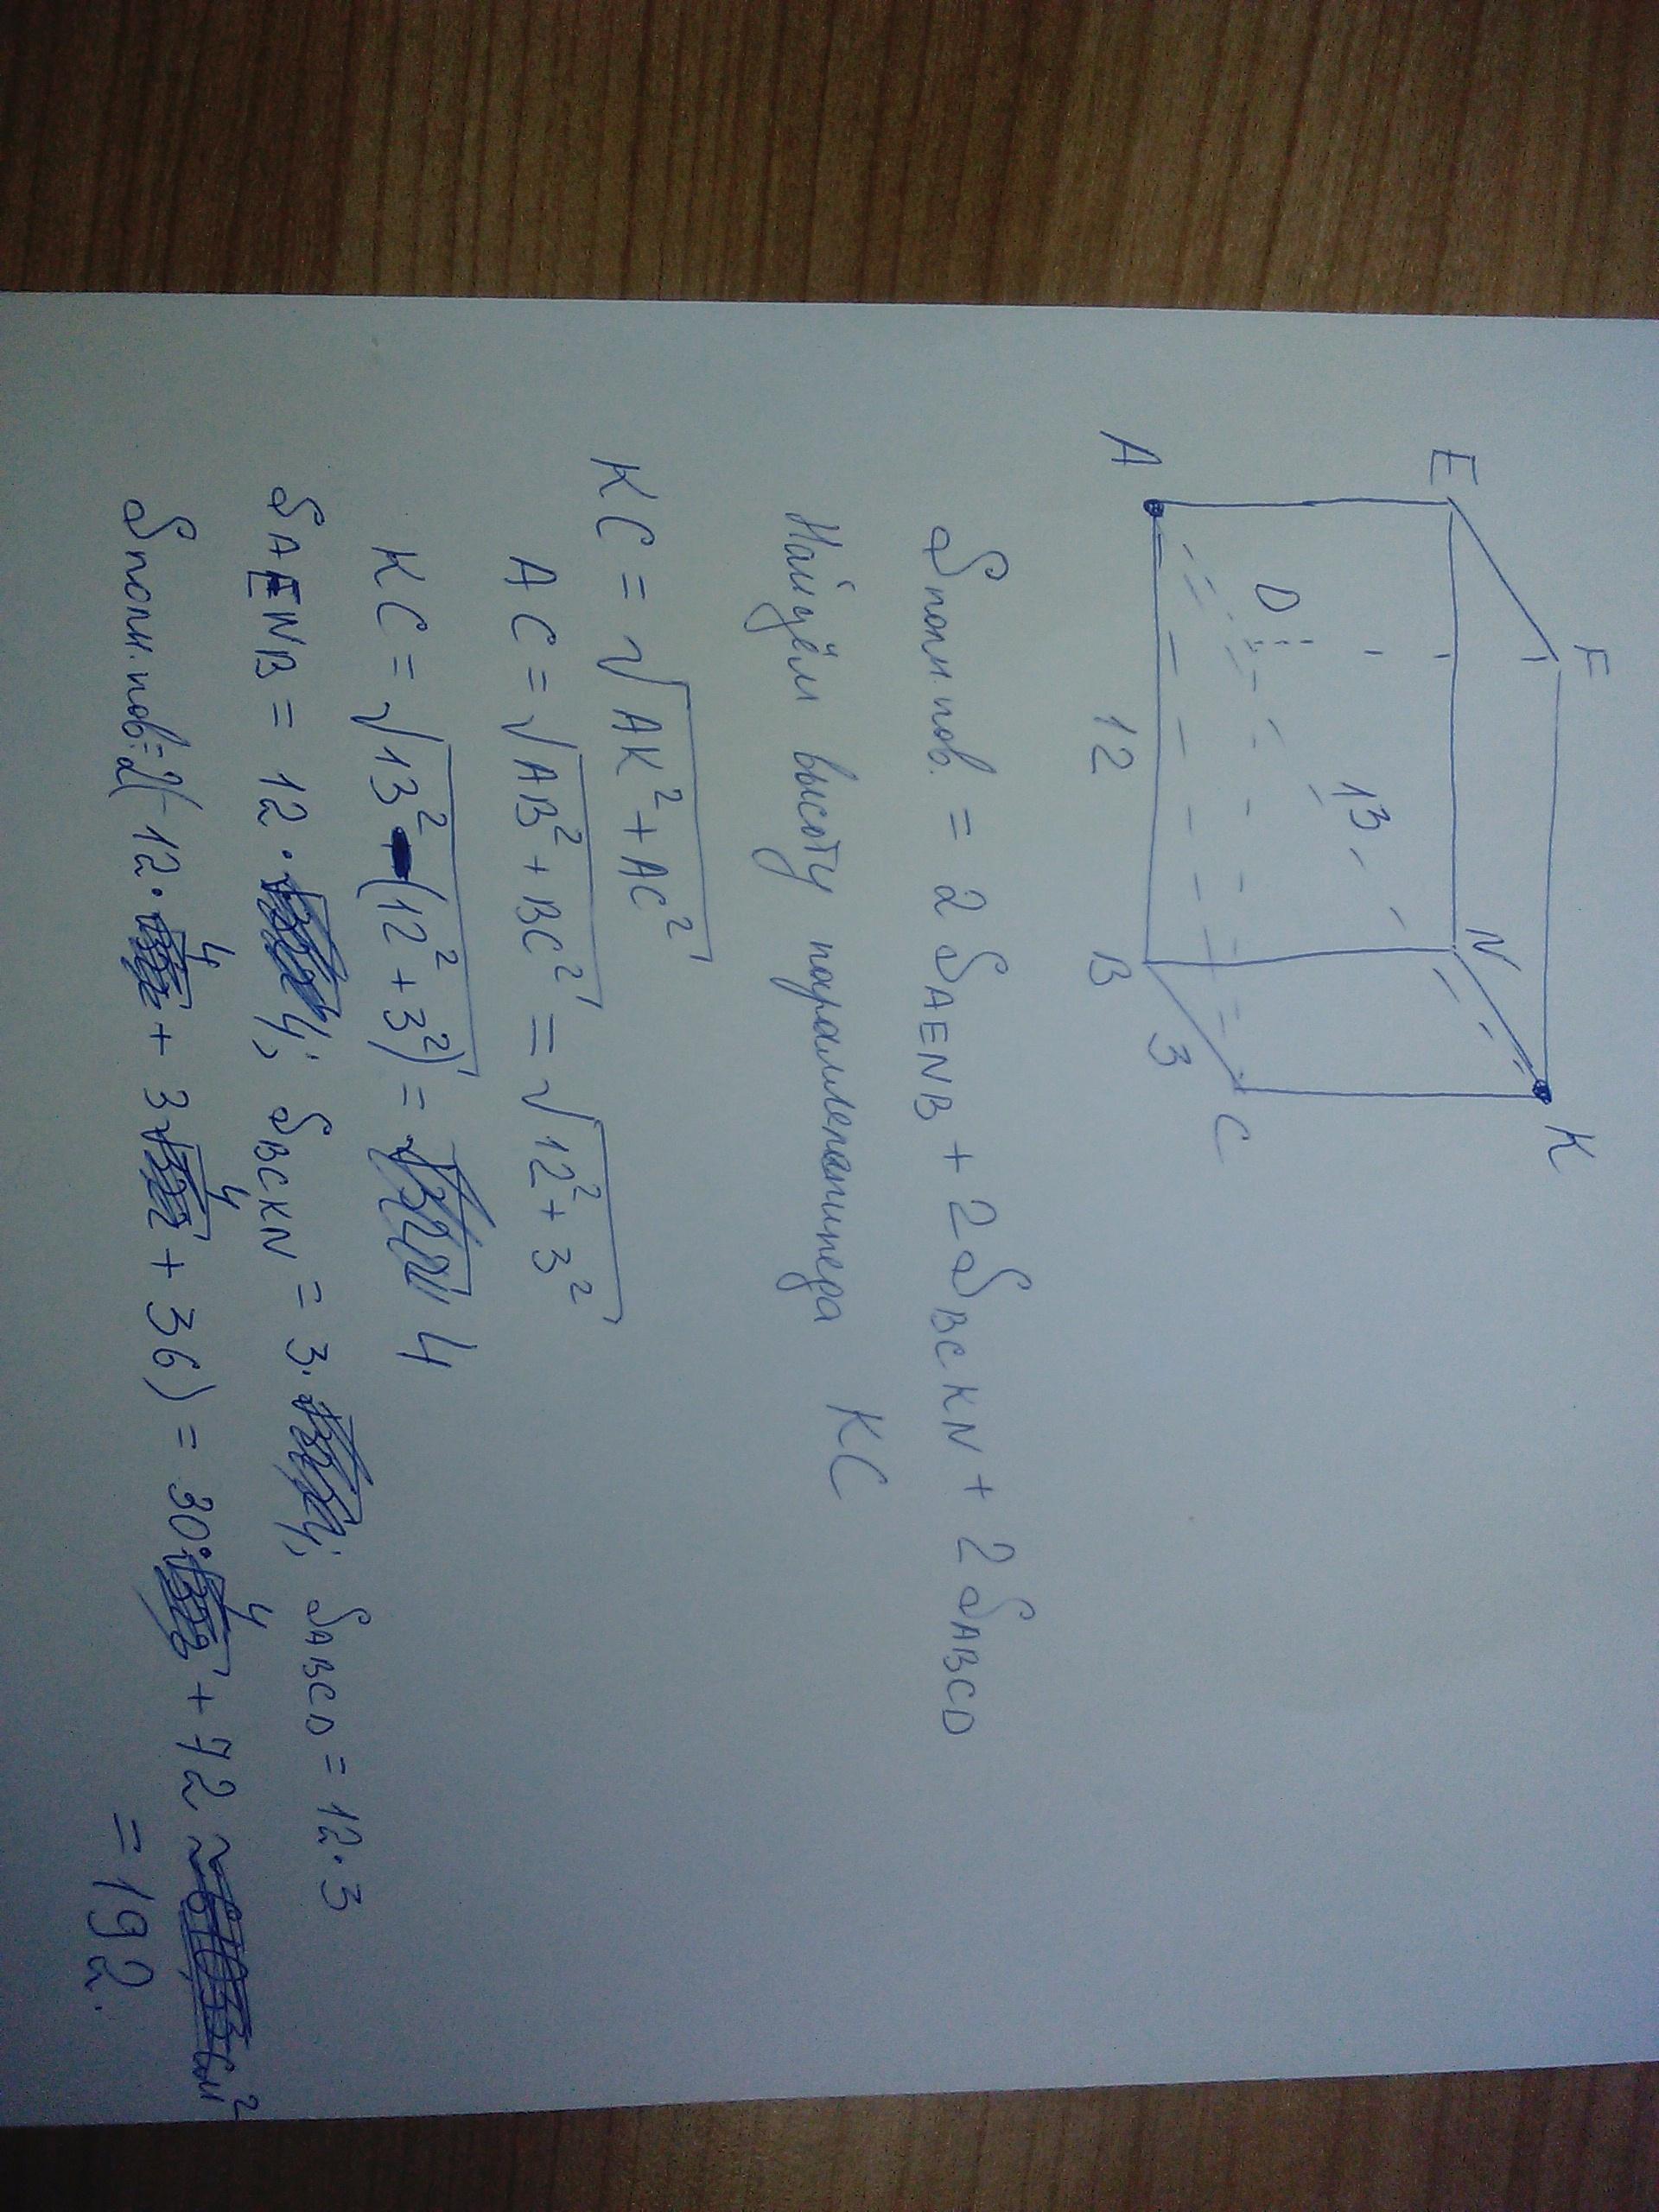 E F
N K
A D
13
B C
12 3
Sполн.пов. = 2 SAENB + 2 SBCKN + 2 SABCD
Найдём высоту параллелепипеда KC
KC = √AK² + AC²
AC = √AB² + BC² = √12² + 3²
KC = √13² - (12² + 3²) = 4
SAENB = 12 · 4; SBCKN = 3 · 4; SABCD = 12 · 3
Sполн.пов = 2( 12 · 4 + 3 4 + 36) = 30 · 4 + 72
= 192.